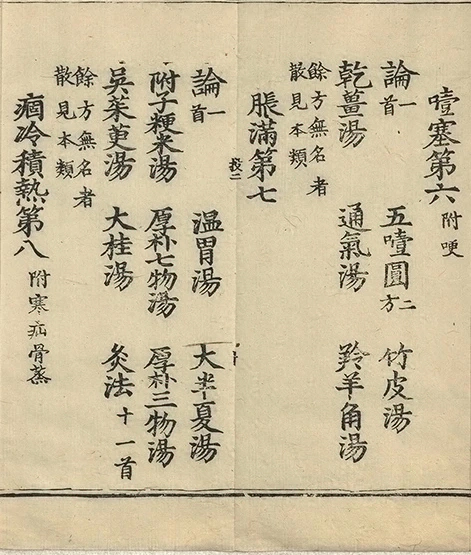 噎塞第六 附哽
論一首 五噎圓二方 竹皮湯
乾薑湯 通氣湯 羚羊角湯
餘方無名者
散見本類
脹滿第七
論一首 温胃湯 大半夏湯
附子粳米湯 厚朴七物湯 厚朴三物湯
吳茱萸湯 大桂湯 灸法十一首
餘方無名者
散見本類
痼冷積熱第八 附寒疝骨蒸